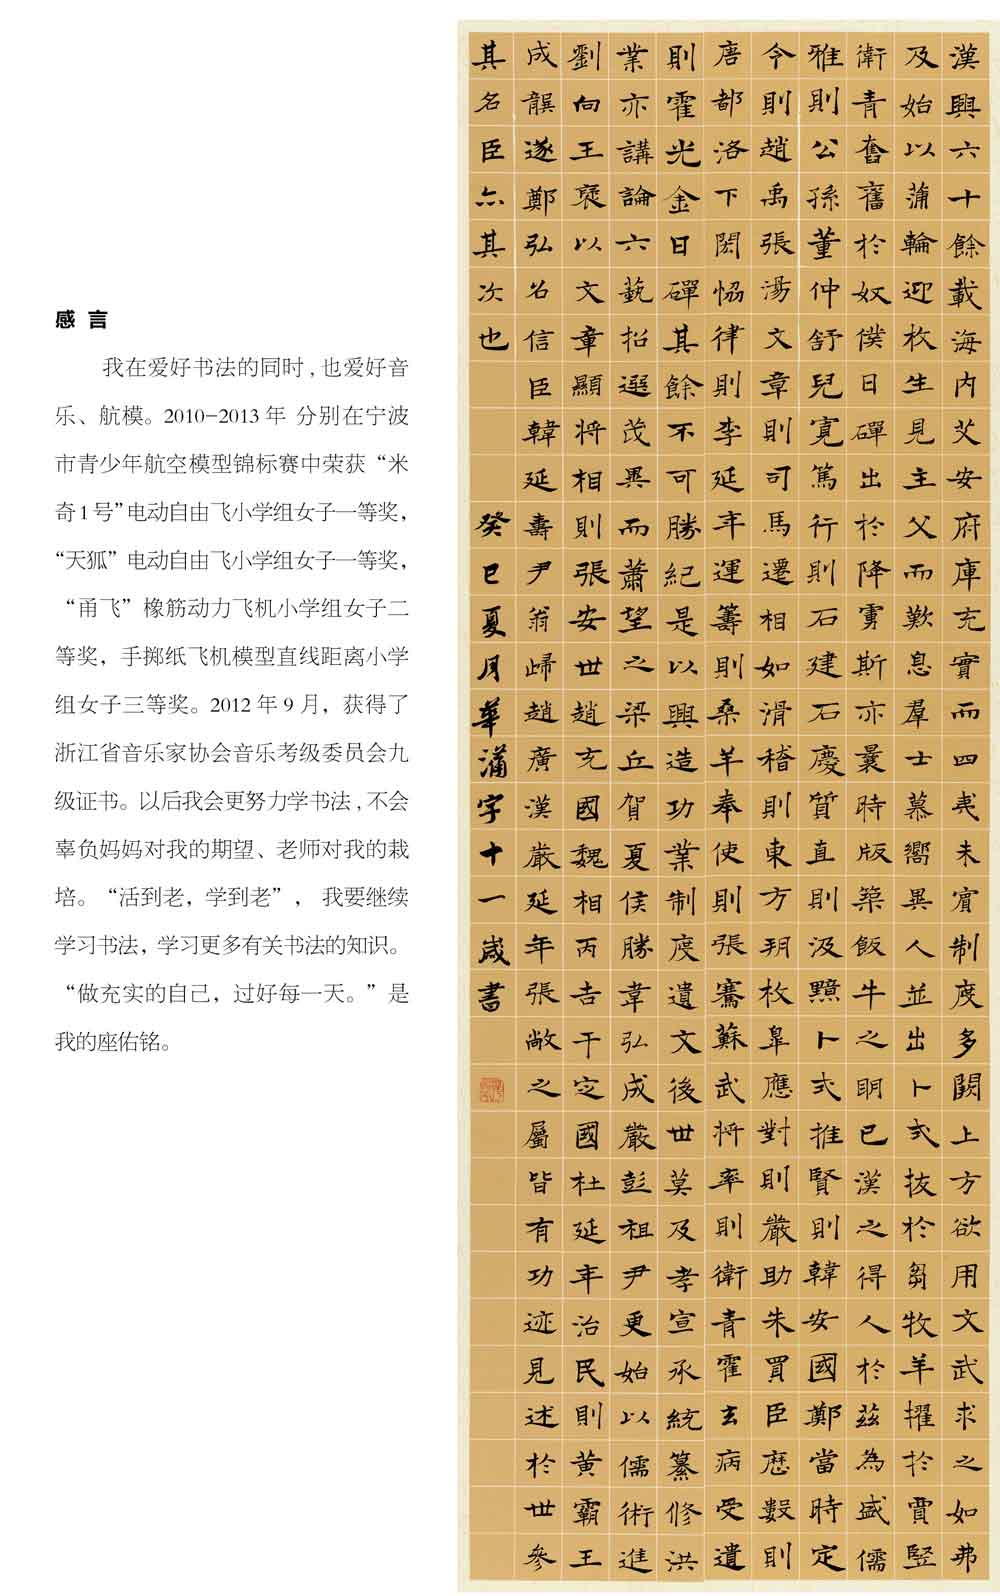 感言
我在爱好书法的同时,也爱好音
乐、航模。2010-2013年 分别在宁波
市青少年航空模型锦标赛中荣获“米
奇1号”电动自由飞小学组女子一等奖,
“天狐”电动自由飞小学组女子一等奖,
“甬飞”橡筋动力飞机小学组女子二
等奖，手掷纸飞机模型直线距离小学
组女子三等奖。2012年9月，获得了
浙江省音乐家协会音乐考级委员会九
级证书。以后我会更努力学书法,不会
辜负妈妈对我的期望、老师对我的栽
培。“活到老，学到老”， 我要继续
学习书法，学习更多有关书法的知识。
“做充实的自己，过好每一天。”是
我的座佑铭。
漢興六十餘載海内艾安府庫充實而四夷未賓制度多闕上方欲用文武求之如弗
及始以蒲輪迎枚生見主父而歎息羣士慕嚮異人並出卜式抜於芻牧羊擢於賈竪
衛青奮舊於奴僕日磾出於降虜斯亦曩時版築飯牛之明已漢之得人於茲為盛儒
雅則公孫董仲舒兒寬篤行則石建石慶質直則汲黯卜式推賢則韓安國鄭當時定
令則趙禹張湯文章則司馬遷相如滑稽則東方朔枚皋應對則嚴助朱買臣歷數則
唐都洛下閎恊律則李延年運籌則桑羊奉使則張騫蘇武將率則衛青霍去病受遺
則霍光金日磾其餘不可勝紀是以興造功業制度遺文後世莫及孝宣承統纂修洪
業亦講論六藝招選茂異而蕭望之梁丘賀夏侯勝韋弘成嚴彭祖尹更始以儒術進
劉向王褒以文章顯將相則張安世趙充國魏相丙吉于定國杜延年治民則黄霸王
成龔遂鄭弘名信臣韓延壽尹翁歸趙廣漢嚴延年張敞之屬皆有功迹見述於世參
其名臣亦其次也 癸巳夏月華蒲字十一歲書